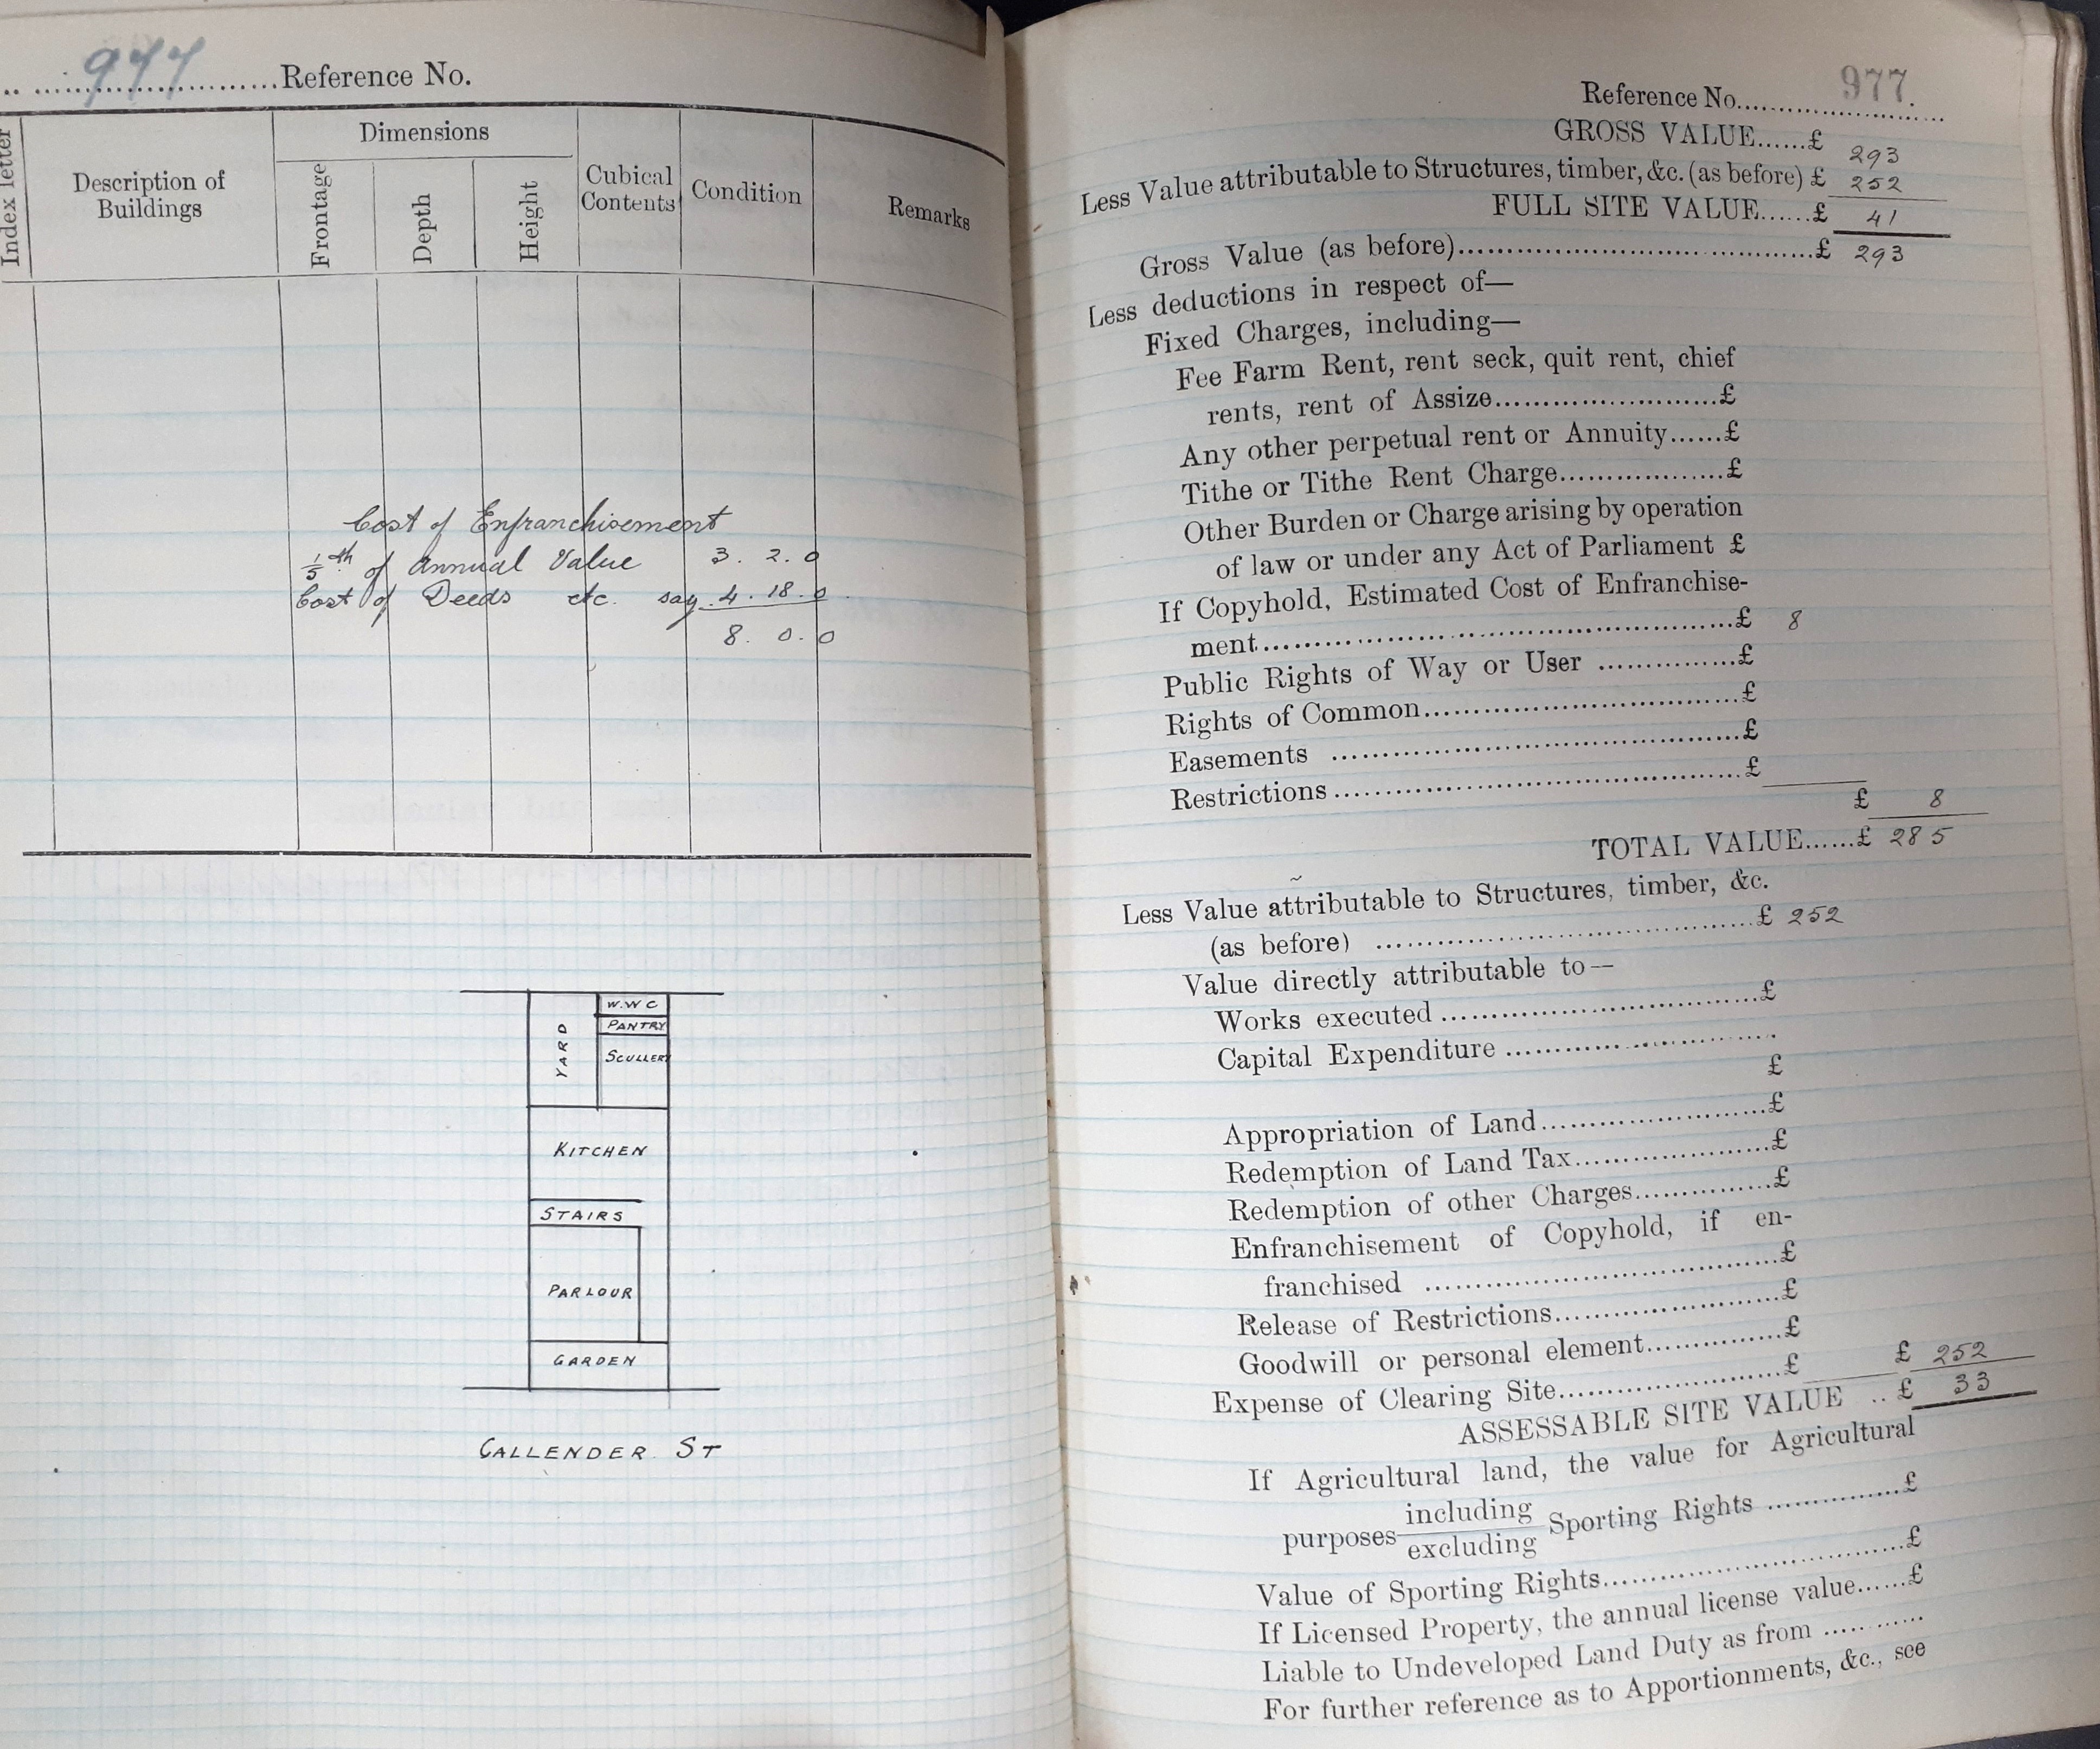 977 Reference No.
Index letter
Description of Buildings
Dimensions
Frontage
Depth
Height
Cubical Contents
Condition
Remarks
Cost of Enfranchisement
1/5th of Annual Value 3. 2. 0
Cost of Deeds etc. say 4. 18. 0
8. 0. 0
W.W C
PANTRY
YARD
SCULLERY
KITCHEN
STAIRS
PARLOUR
GARDEN
CALLENDER ST
Reference No. 977.
GROSS VALUE......£ 293
Less Value attributable to Structures, timber, &c. (as before) £ 252
FULL SITE VALUE......£ 41
Gross Value (as before)......£ 293
Less deductions in respect of—
Fixed Charges, including—
Fee Farm Rent, rent seck, quit rent, chief
rents, rent of Assize......£
Any other perpetual rent or Annuity......£
Tithe or Tithe Rent Charge......£
Other Burden or Charge arising by operation
of law or under any Act of Parliament £
If Copyhold, Estimated Cost of Enfranchise-
ment......£ 8
Public Rights of Way or User ......£
Rights of Common......£
Easements ......£
Restrictions......£
£ 8
TOTAL VALUE......£ 285
Less Value attributable to Structures, timber, &c.
(as before) ......£ 252
Value directly attributable to—
Works executed ......£
Capital Expenditure ......
£
Appropriation of Land......£
Redemption of Land Tax......£
Redemption of other Charges......£
Enfranchisement of Copyhold, if en-
franchised ......£
Release of Restrictions......£
Goodwill or personal element......£
Expense of Clearing Site......£ £ 252
ASSESSABLE SITE VALUE ..£ 33
If Agricultural land, the value for Agricultural
purposes including
excluding Sporting Rights ......£
Value of Sporting Rights......£
If Licensed Property, the annual license value......£
Liable to Undeveloped Land Duty as from ......
For further reference as to Apportionments, &c., see